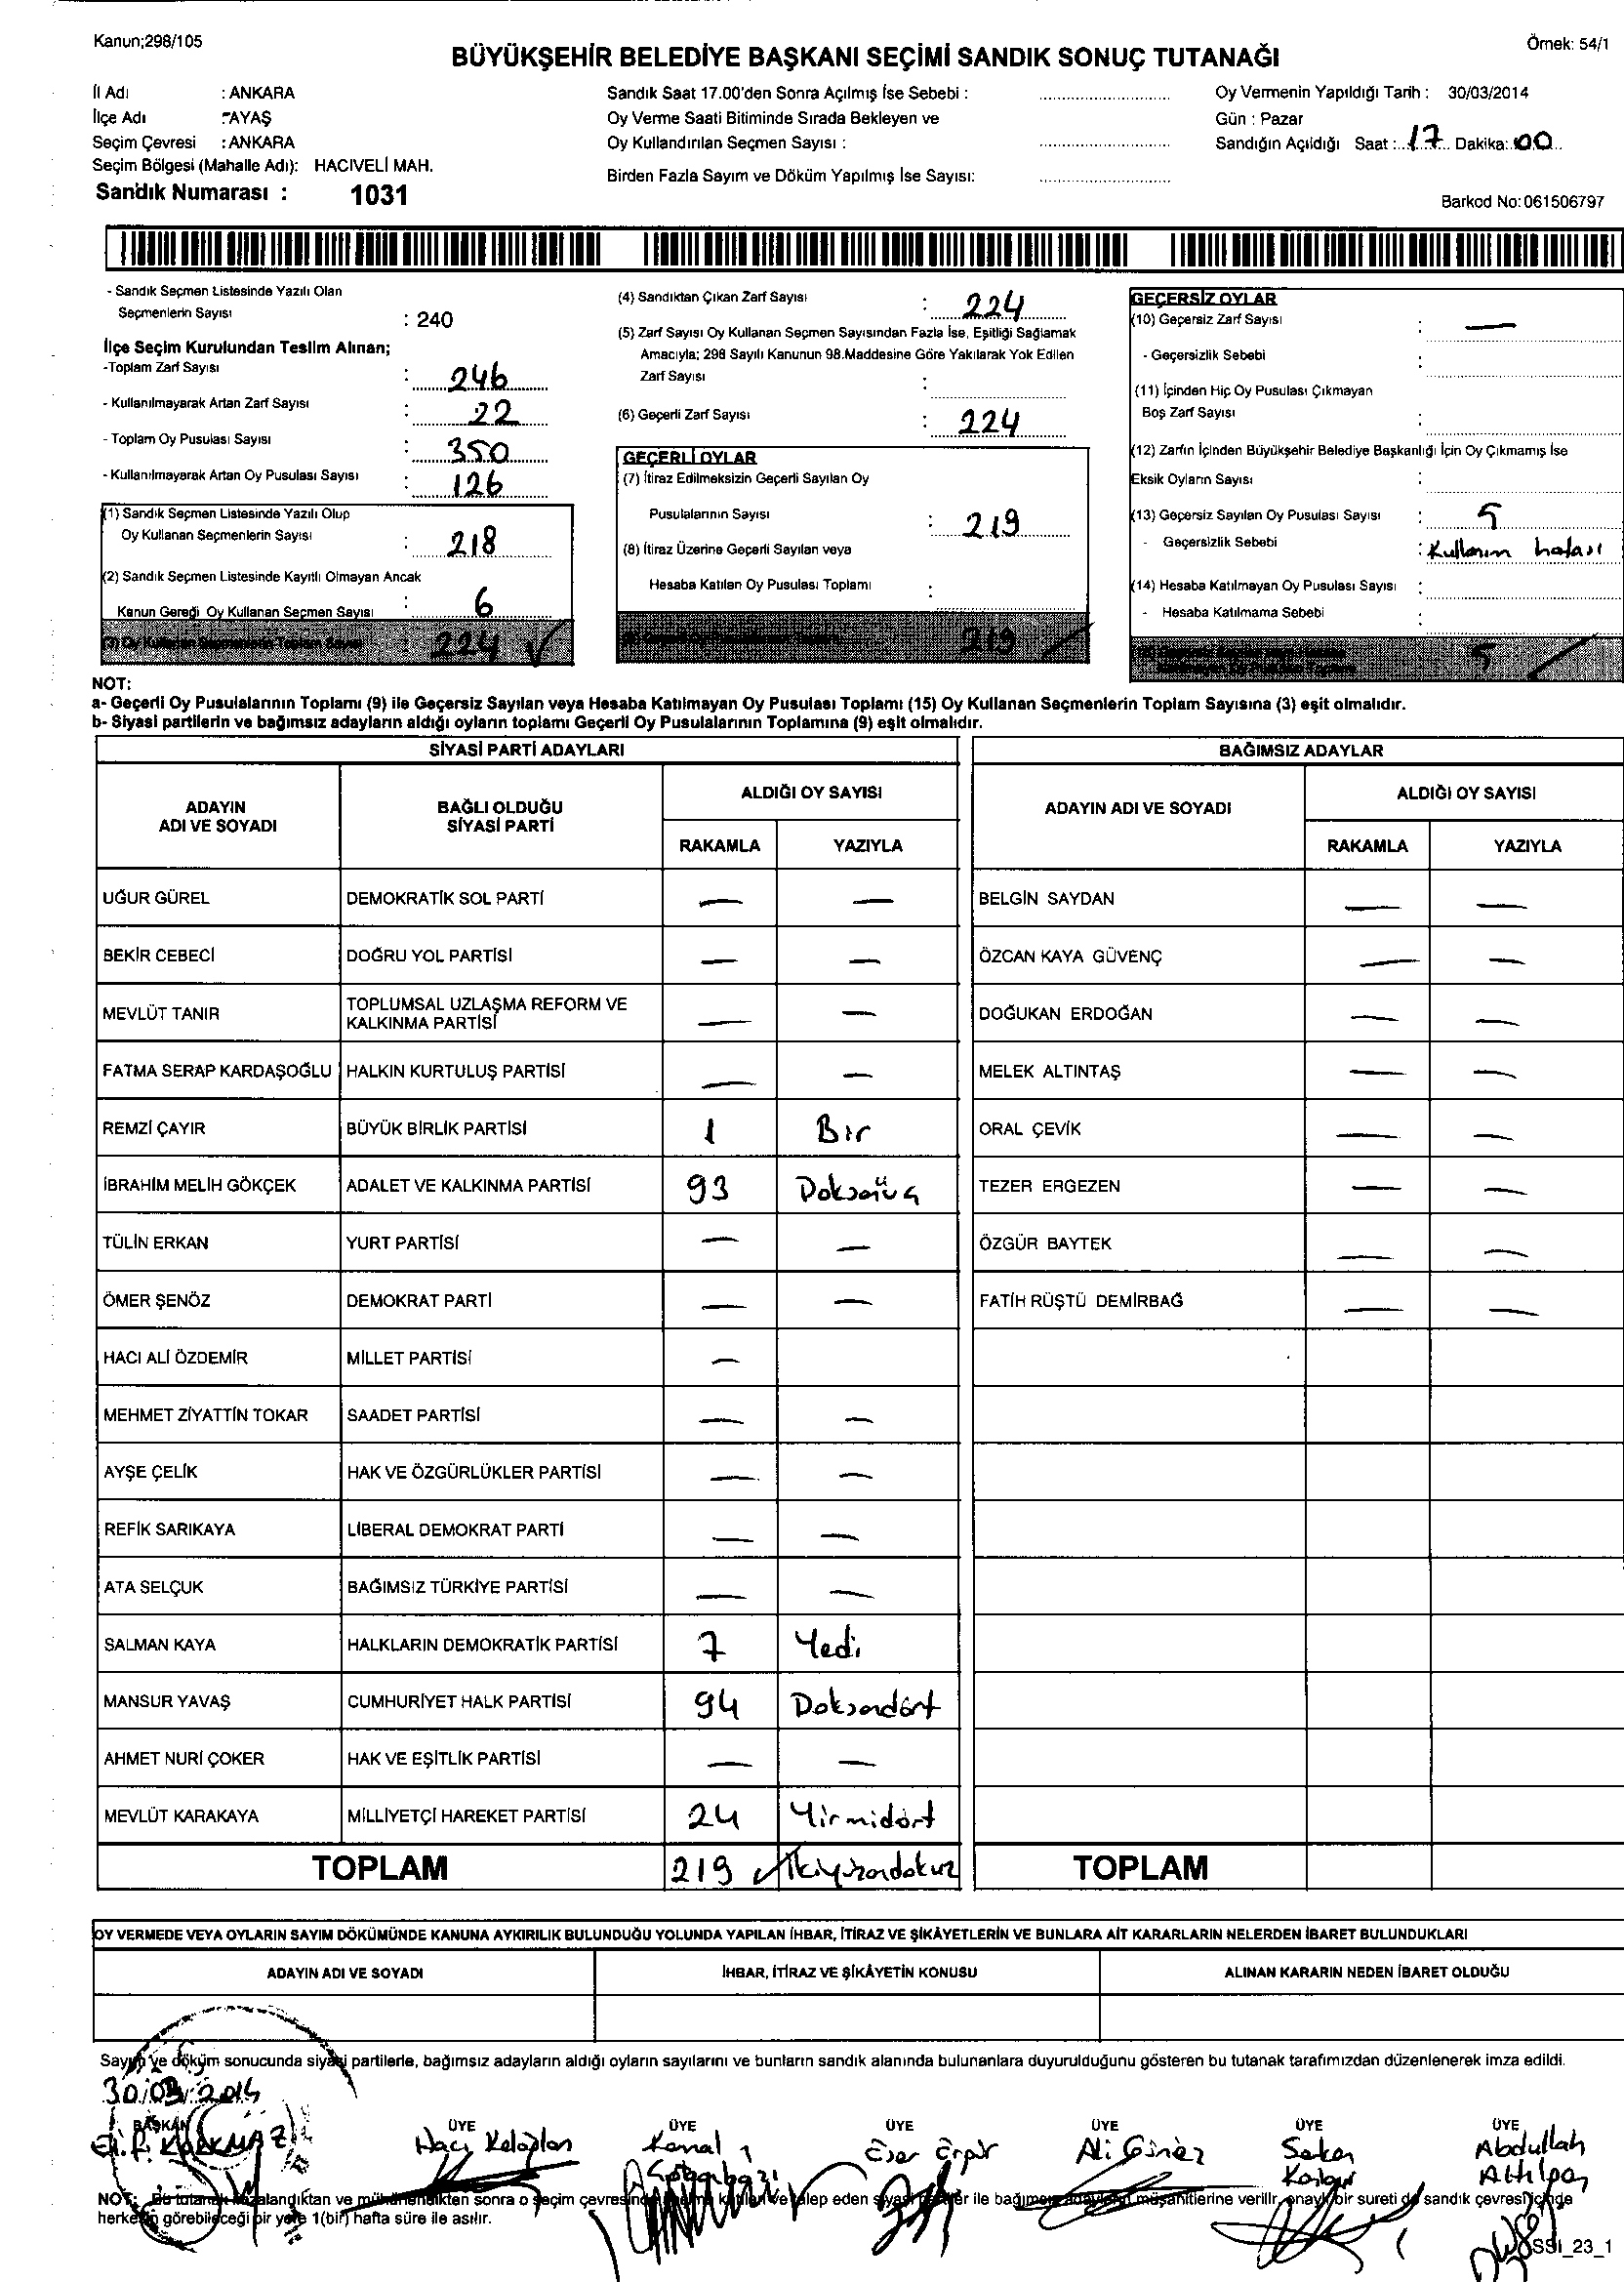 Kanun;298/105
Örnek: 54/1
BÜYÜKŞEHİR BELEDİYE BAŞKANI SEÇİMİ SANDIK SONUÇ TUTANAĞI
İl Adı : ANKARA
İlçe Adı : AYAŞ
Seçim Çevresi : ANKARA
Seçim Bölgesi (Mahalle Adı): HACIVELİ MAH.
Sandık Numarası : 1031
Sandık Saat 17.00'den Sonra Açılmış İse Sebebi :
Oy Verme Saati Bitiminde Sırada Bekleyen ve
Oy Kullandırılan Seçmen Sayısı :
Birden Fazla Sayım ve Döküm Yapılmış İse Sayısı:
Oy Vermenin Yapıldığı Tarih : 30/03/2014
Gün : Pazar
Sandığın Açıldığı Saat : 17 Dakika: 00
Barkod No: 061506797
- Sandık Seçmen Listesinde Yazılı Olan
Seçmenlerin Sayısı : 240
İlçe Seçim Kurulundan Teslim Alınan;
-Toplam Zarf Sayısı : 246
- Kullanılmayarak Artan Zarf Sayısı : 22
- Toplam Oy Pusulası Sayısı : 350
- Kullanılmayarak Artan Oy Pusulası Sayısı : 126
(1) Sandık Seçmen Listesinde Yazılı Olup
Oy Kullanan Seçmenlerin Sayısı : 218
(2) Sandık Seçmen Listesinde Kayıtlı Olmayan Ancak
Kanun Gereği Oy Kullanan Seçmen Sayısı : 6
(3) Oy Kullanan Seçmenlerin Toplam Sayısı : 224
(4) Sandıktan Çıkan Zarf Sayısı : 224
(5) Zarf Sayısı Oy Kullanan Seçmen Sayısından Fazla İse, Eşitliği Sağlamak
Amacıyla; 298 Sayılı Kanunun 98.Maddesine Göre Yakılarak Yok Edilen
Zarf Sayısı :
(6) Geçerli Zarf Sayısı : 224
GEÇERLİ OYLAR
(7) İtiraz Edilmeksizin Geçerli Sayılan Oy
Pusulalarının Sayısı : 219
(8) İtiraz Üzerine Geçerli Sayılan veya
Hesaba Katılan Oy Pusulası Toplamı :
(9) Geçerli Oy Pusulalarının Toplamı : 219
GEÇERSİZ OYLAR
(10) Geçersiz Zarf Sayısı : —
- Geçersizlik Sebebi :
(11) İçinden Hiç Oy Pusulası Çıkmayan
Boş Zarf Sayısı :
(12) Zarfın İçinden Büyükşehir Belediye Başkanlığı İçin Oy Çıkmamış İse
Eksik Oyların Sayısı :
(13) Geçersiz Sayılan Oy Pusulası Sayısı : 5
- Geçersizlik Sebebi : Kullanım hatası
(14) Hesaba Katılmayan Oy Pusulası Sayısı :
- Hesaba Katılmama Sebebi :
5
NOT:
a- Geçerli Oy Pusulalarının Toplamı (9) ile Geçersiz Sayılan veya Hesaba Katılmayan Oy Pusulası Toplamı (15) Oy Kullanan Seçmenlerin Toplam Sayısına (3) eşit olmalıdır.
b- Siyasi partilerin ve bağımsız adayların aldığı oyların toplamı Geçerli Oy Pusulalarının Toplamına (9) eşit olmalıdır.
SİYASİ PARTİ ADAYLARI
ADAYIN ADI VE SOYADI BAĞLI OLDUĞU SİYASİ PARTİ ALDIĞI OY SAYISI
RAKAMLA YAZIYLA
UĞUR GÜREL DEMOKRATİK SOL PARTİ — —
BEKİR CEBECİ DOĞRU YOL PARTİSİ — —
MEVLÜT TANIR TOPLUMSAL UZLAŞMA REFORM VE KALKINMA PARTİSİ — —
FATMA SERAP KARDAŞOĞLU HALKIN KURTULUŞ PARTİSİ — —
REMZİ ÇAYIR BÜYÜK BİRLİK PARTİSİ 1 Bir
İBRAHİM MELİH GÖKÇEK ADALET VE KALKINMA PARTİSİ 93 Doksanüç
TÜLİN ERKAN YURT PARTİSİ — —
ÖMER ŞENÖZ DEMOKRAT PARTİ — —
HACI ALİ ÖZDEMİR MİLLET PARTİSİ —
MEHMET ZİYATTİN TOKAR SAADET PARTİSİ — —
AYŞE ÇELİK HAK VE ÖZGÜRLÜKLER PARTİSİ — —
REFİK SARIKAYA LİBERAL DEMOKRAT PARTİ — —
ATA SELÇUK BAĞIMSIZ TÜRKİYE PARTİSİ — —
SALMAN KAYA HALKLARIN DEMOKRATİK PARTİSİ 7 Yedi
MANSUR YAVAŞ CUMHURİYET HALK PARTİSİ 94 Doksandört
AHMET NURİ ÇOKER HAK VE EŞİTLİK PARTİSİ — —
MEVLÜT KARAKAYA MİLLİYETÇİ HAREKET PARTİSİ 24 Yirmidört
TOPLAM 219 İkiyüzondokuz
BAĞIMSIZ ADAYLAR
ADAYIN ADI VE SOYADI ALDIĞI OY SAYISI
RAKAMLA YAZIYLA
BELGİN SAYDAN — —
ÖZCAN KAYA GÜVENÇ — —
DOĞUKAN ERDOĞAN — —
MELEK ALTINTAŞ — —
ORAL ÇEVİK — —
TEZER ERGEZEN — —
ÖZGÜR BAYTEK — —
FATİH RÜŞTÜ DEMİRBAĞ — —
TOPLAM
OY VERMEDE VEYA OYLARIN SAYIM DÖKÜMÜNDE KANUNA AYKIRILIK BULUNDUĞU YOLUNDA YAPILAN İHBAR, İTİRAZ VE ŞİKÂYETLERİN VE BUNLARA AİT KARARLARIN NELERDEN İBARET BULUNDUKLARI
ADAYIN ADI VE SOYADI İHBAR, İTİRAZ VE ŞİKÂYETİN KONUSU ALINAN KARARIN NEDEN İBARET OLDUĞU
Sayım ve döküm sonucunda siyasi partilerle, bağımsız adayların aldığı oyların sayılarını ve bunların sandık alanında bulunanlara duyurulduğunu gösteren bu tutanak tarafımızdan düzenlenerek imza edildi.
30/03/2014
BAŞKAN ÜYE ÜYE ÜYE ÜYE ÜYE ÜYE
KORKMAZ Hacı Kemal Eser Ali Abdullah
NOT: Bu tutanak imzalandıktan ve mühürlendikten sonra o seçim çevresinde talep eden siyasi ile bağımsız adayların müşahitlerine verilir, onaylı bir sureti de sandık çevresi içinde
herkesin görebileceği bir yere 1(bir) hafta süre ile asılır.
SSI_23_1